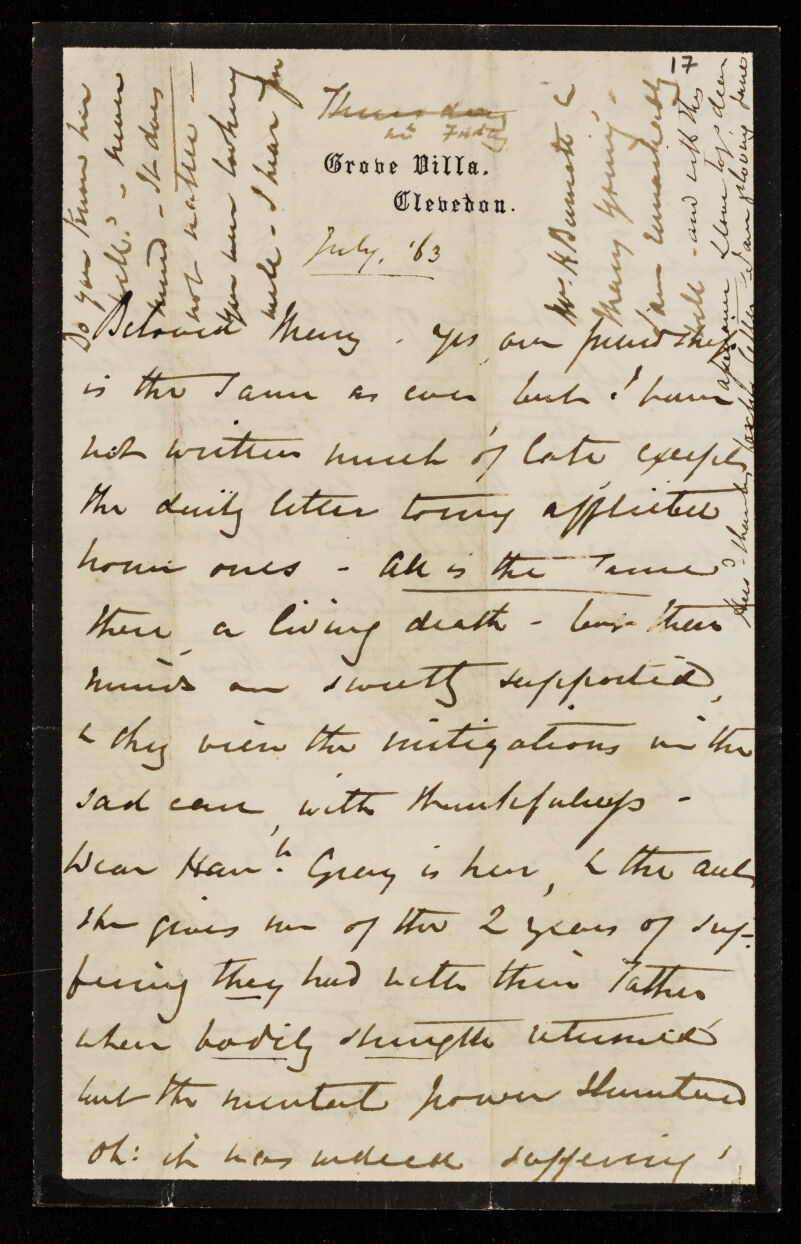 17
Thursday
Grove Villa.
Clevedon.
July. '63
Beloved Mercy. Yes, our friendship
is the same as ever but I have
not written much of late, except
the daily letter to my afflicted
home ones - All is the same
there, a living death - but their
minds are sweetly supported,
& they view the mitigations in the
sad case, with thankfulness -
Dear Hanh. Grey is here, & the acct
she gives me of the 2 years of suf-
fering they had with their Father
when bodily strength returned
but the mental power
Oh: it was indeed suffering!
Do you know her
well? - never
mind - It does
not matter -
you were looking
well - I hear from
Mr. & &
Mercy young -
I am remarkably
well - and with this
love to dear
I am loving Jane